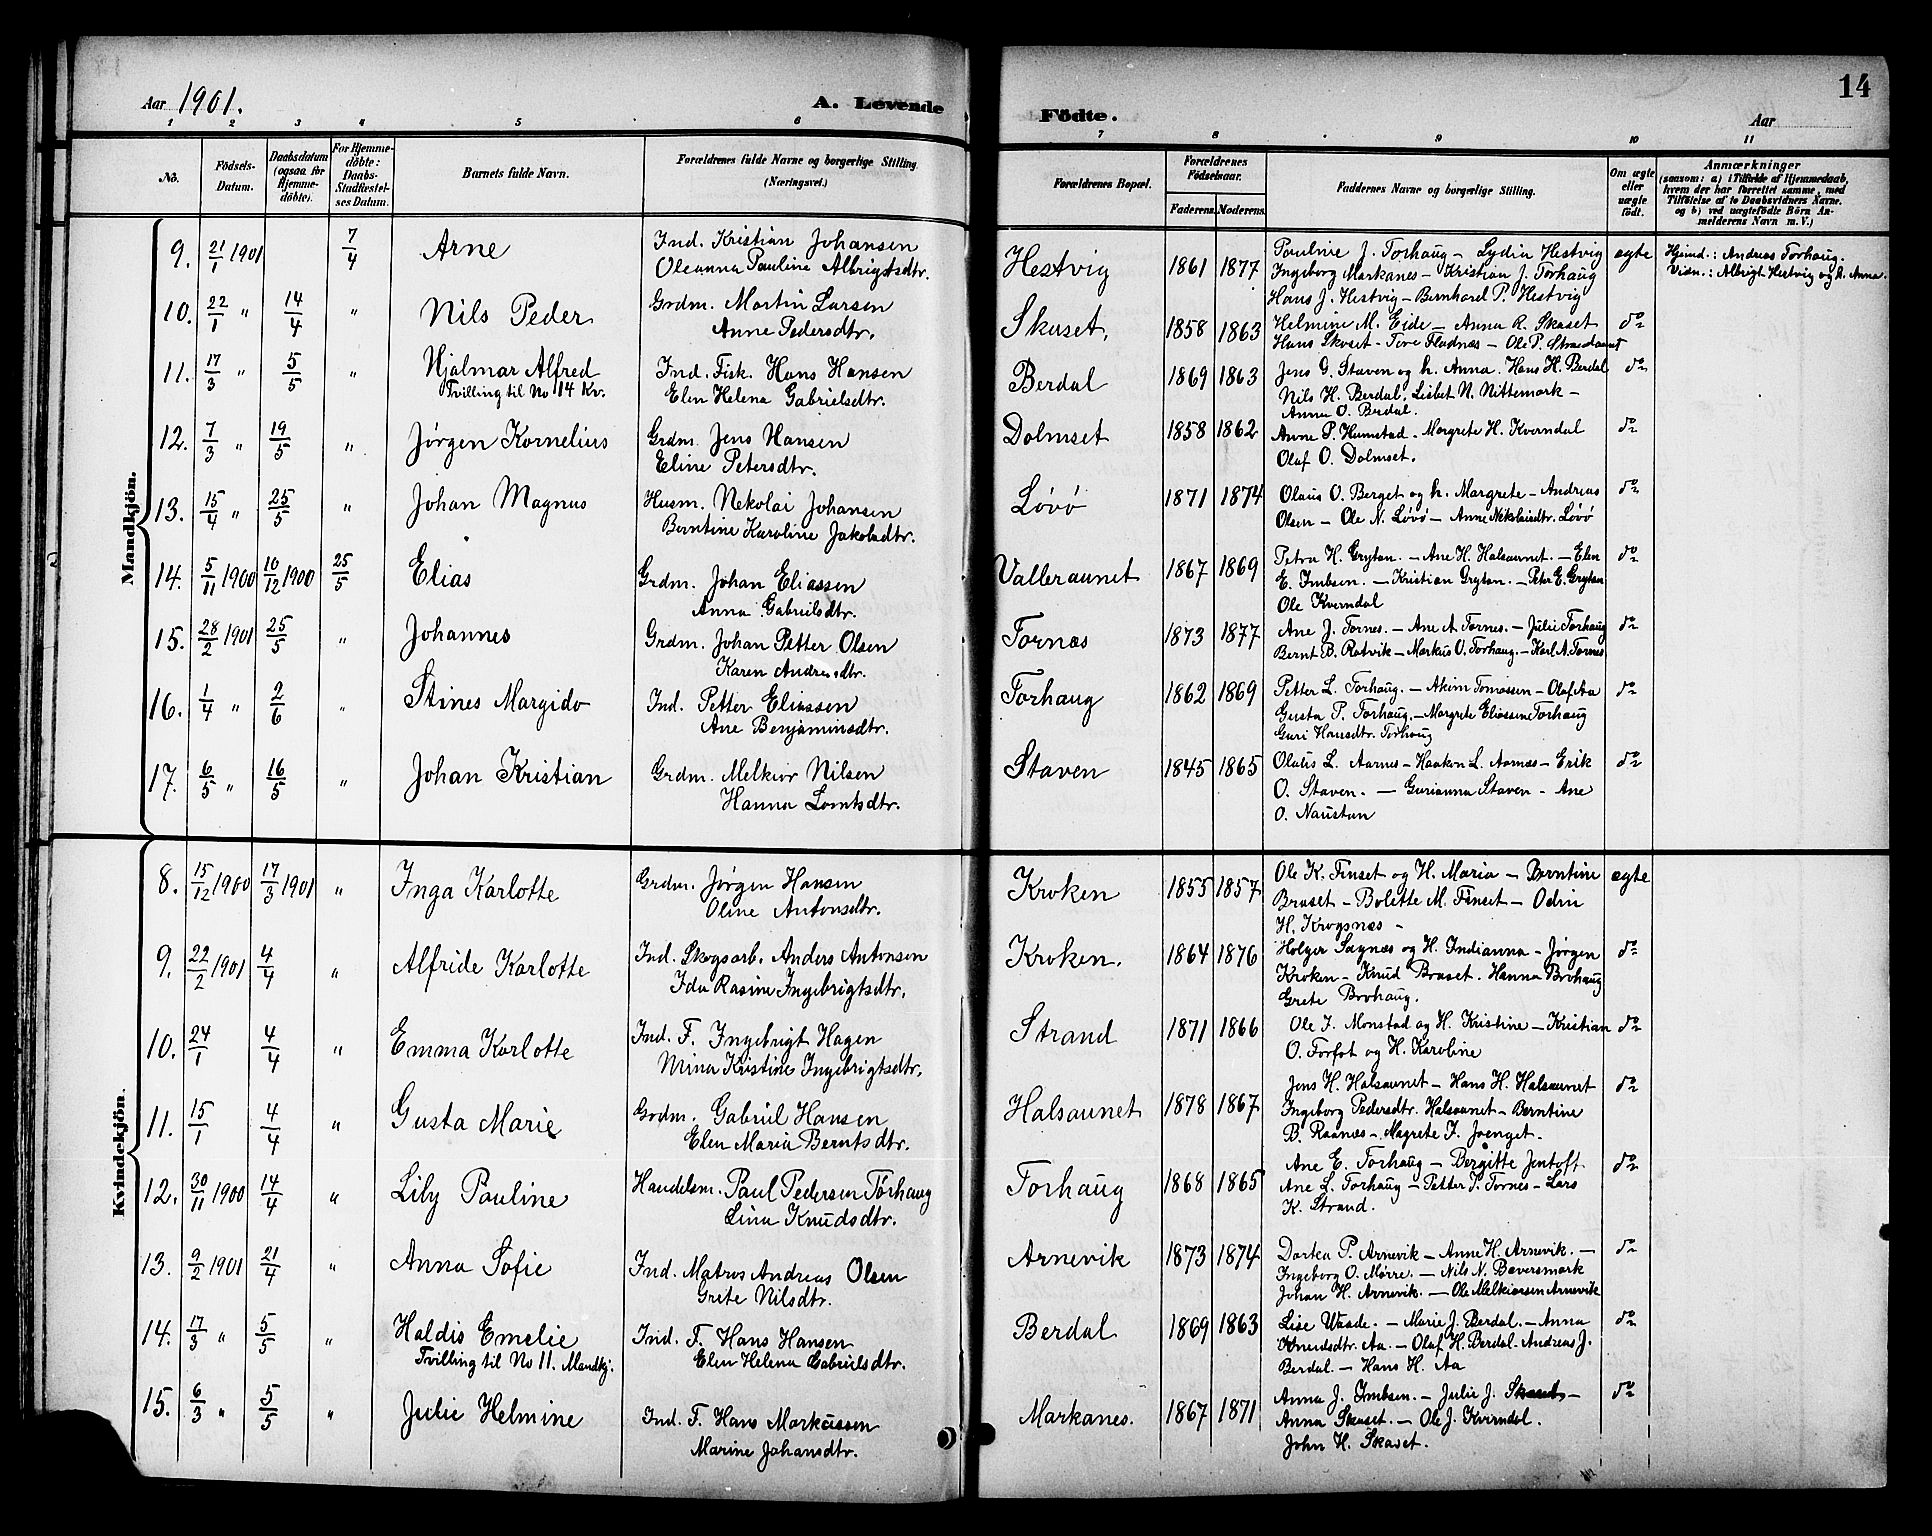 Aar 1901.
A. Levende
Födte.
Aar
14
1 2 3 4 5 6 7 8 9 10 11
No.
Födsels-Datum.
Daabsdatum (ogsaa for Hjemme-döbte).
For Hjemme-döbte: Daabs-Stadfæstel-ses Datum.
Barnets fulde Navn.
Forældrenes fulde Navne og borgerlige Stilling. (Næringsvei.)
Forældrenes Bopæl.
Forældrenes Födselsaar.
Faderens. Moderens.
Faddernes Navne og borgerlige Stilling.
Om ægte eller uægte födt.
Anmærkninger
(saasom: a) i Tilfælde af Hjemmedaab, hvem der har forrettet samme, med Tilföielse af to Daabsvidners Navne, og b) ved uægtefödte Börn An-melderens Navn m. V.)
Mandkjön.
9. 21/1 1901 7/4 Arne Ind. Kristian Johansen
Oleanna Pauline Albrigtsdtr.
Hestvig 1861 1877 Pauline J. Torhaug - Lydia Hestvig
Ingeborg Markanes - Kristian J. Torhaug
Hans J. Hestvig - Bernhard P. Hestvig
ægte Hjemd.: Andreas Torhaug.
Vidn.: Albrigt Hestvig og h. Anna.
10. 22/1 " 14/4 " Nils Peder Grdm. Martin Larsen
Anne Pedersdtr.
Skaset. 1858 1863 Helmine M. Eide - Anna R. Skaset
Hans Skaset - Tore Fladnæs - Ole P.
do
11. 17/3 " 5/5 " Hjalmar Alfred
Tvilling til No 14 Kv.
Ind. Fisk. Hans Hansen
Elen Helena Gabrielsdtr.
Berdal 1869 1863 Jens G. Staven og h. Anna. Hans H. Berdal
Nils H. Berdal, Lisbet N. Nittemark -
Anna O. Berdal.
do
12. 7/3 " 19/5 " Jørgen Kornelius Grdm. Jens Hansen
Eline Petersdtr.
Dolmset 1858 1862 Anne P. Humstad. Margrete H. Kverndal
Olaf O. Dolmset.
do
13. 15/4 " 25/5 " Johan Magnus Husm. Nekolai Johansen
Berntine Karoline Jakobsdtr.
Løvø 1871 1874 Olaus O. Berget og h. Margrete - Andreas
Olsen - Ole N. Løvø - Anne Nekolaisdtr. Løvø
do
14. 5/11 1900 10/12 1900 25/5 Elias Grdm. Johan Eliassen
Anna Gabrielsdtr.
Valleraunet 1867 1869 Petra H. Grytan. - Ane H. Halsaunet. - Elen
E. Imbsen. - Kristian Grytan. - Peter E. Grytan
Ole Kverndal
do
15. 28/2 1901 25/5 " Johannes Grdm. Johan Petter Olsen
Karen Andreasdtr.
Tornæs 1873 1877 Ane J. Tornes. - Ane A. Tornes. - Julie Torhaug
Bernt B. Ratvik - Markus O. Torhaug. - Karl A. Tornes
do
16. 1/4 " 2/6 " Stines Margido Ind. Petter Eliassen
Ane Benjaminsdtr.
Torhaug 1862 1869 Petter L. Torhaug. - Akim Tomassen - Olaf Aa
Gusta P. Torhaug. - Margrete Eliassine Torhaug
Guri Hansdtr. Torhaug
do
17. 6/5 " 16/5 " Johan Kristian Grdm. Melkior Nilsen
Hanna Lorntsdtr.
Staven 1845 1865 Olaus L. Aarnes - Haaken L. Aarnæs - Erik
O. Staven. - Gurianna Staven - Ane
O. Naustan
do
Kvindekjön.
8. 15/12 1900 17/3 1901 " Inga Karlotte Grdm. Jørgen Hansen
Oline Antonsdtr.
Kroken 1855 1857 Ole K. Finset og H. Maria - Berntine
Braset - Bolette M. Finset - Odin
H. Krogsnæs -
ægte
9. 22/2 1901 4/4 " Alfride Karlotte Ind. Skogsarb. Anders Antonsen
Ida Rasine Ingebrigtsdtr.
Kroken. 1864 1876 Holger Sagnæs og H. Indianna - Jørgen
Kroken - Knud Braset. Hanna Brohaug
Grete Brohaug.
do
10. 24/1 4/4 " Emma Karlotte Ind. F. Ingebrigt Hagen
Nrina Kristine Ingebrigtsdtr.
Strand 1871 1866 Ole I. Monstad og H. Kristine - Kristian
O. Forfot og H. Karoline
do
11. 15/1 4/4 " Gusta Marie Grdm. Gabriel Hansen
Elen Maria Berntsdtr.
Halsaunet 1878 1867 Jens H. Halsaunet - Hans H. Halsaunet
Ingeborg Pedersdtr. Halsaunet - Berntine
B. Raanæs - Magrete I. Joenget.
do
12. 30/11 1900 14/4 " Lily Pauline Handelsm. Paul Pedersen Torhaug
Lina Knudsdtr.
Torhaug 1868 1865 Ane E. Torhaug - Bergitte Jentoft
Ane L. Torhaug - Petter P. Tornes - Lars
K. Strand.
do
13. 9/2 1901 21/4 " Anna Sofie Ind. Matros Andreas Olsen
Grete Nilsdtr.
Arnevik 1873 1874 Dortea P. Arnevik - Anne H. Arnevik. -
Ingeborg O. Mørre. - Nils N. Bæversmark
Johan H. Arnevik. - Ole Melkiorsen Arnevik
do
14. 17/3 " 5/5 " Haldis Emelie
Tvilling til No 11. Mandkj.
Ind. F. Hans Hansen
Elen Helena Gabrielsdtr.
Berdal 1869 1863 Lise Waade. - Marie J. Berdal. - Anna
Knudsdtr. Aa. - Olaf H. Berdal - Andreas J.
Berdal. - Hans H. Aa
do
15. 6/3 " 5/5 " Julie Helmine Ind. F. Hans Markussen
Marine Johansdtr.
Markanes. 1867 1871 Anna J. Imbsen. - Julie J. Skaset -
Anna Skaset. - Ole J. Kverndal.
John H. Skaset.
do